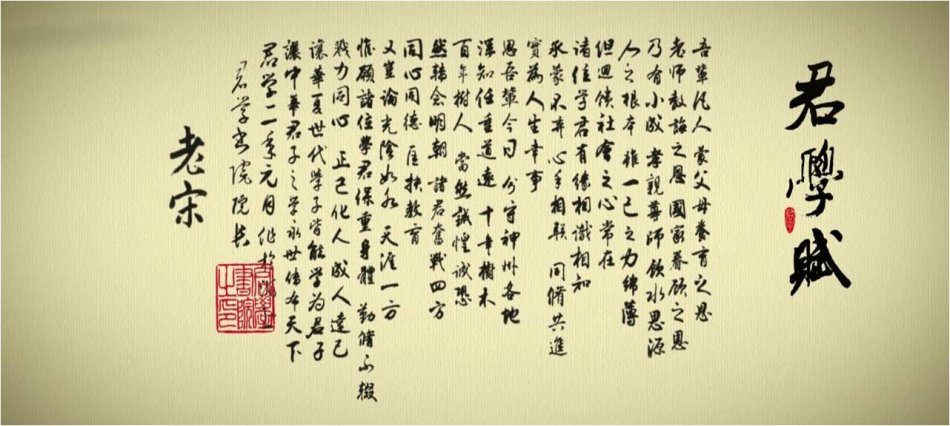 君學賦
吾輩凡人 蒙父母養育之恩
老师教誨之恩 國家眷顧之恩
乃有小成 孝親尊师 飲水思源
人之根本 惟一己之力綿薄
但迴饋社會之心常在
诸位学君有缘相識相知
承蒙不弃 心手相联 同脩共進
實為人生幸事
思吾輩今日 分守神州各地
深知任重道遠 十年樹木
百年樹人 當然誠惶诚恐
然转会明朝 諸君奮戰四方
同心同德 匡扶教育
又豈論光陰如水 天涯一方
惟願諸位學君保重身體 勤脩不輟
戮力同心 正己化人 成人達己
讓華夏世代學子皆能学为君子
讓中華君子之学永世传布天下
君学二年元月作於
君学书院院长
老宋